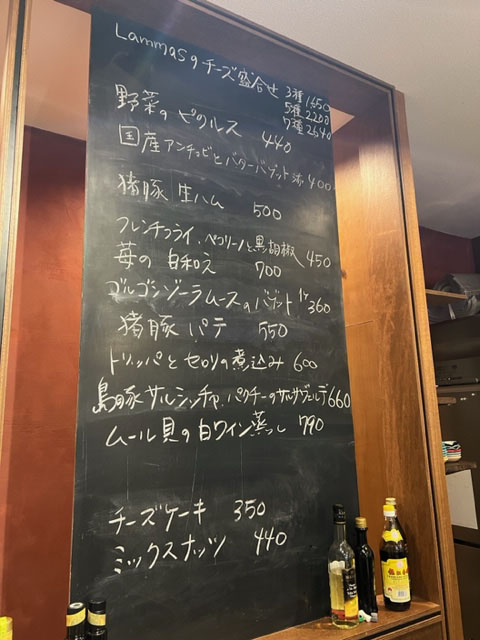 Lammasのチーズ盛合せ 3種1650
5種2200
7種2640
野菜のピクルス 440
国産アンチョビとバターバゲット 400
猪豚 生ハム 500
フレンチフライ、ペコリーノと黒胡椒 450
苺の白和え 700
ゴルゴンゾーラムースのバゲット 1ケ360
猪豚 パテ 550
トリッパとセロリの煮込み 600
島豚サルシッチャ、パクチーのサルサヴェルデ660
ムール貝の白ワイン蒸し 790
チーズケーキ 350
ミックスナッツ 440